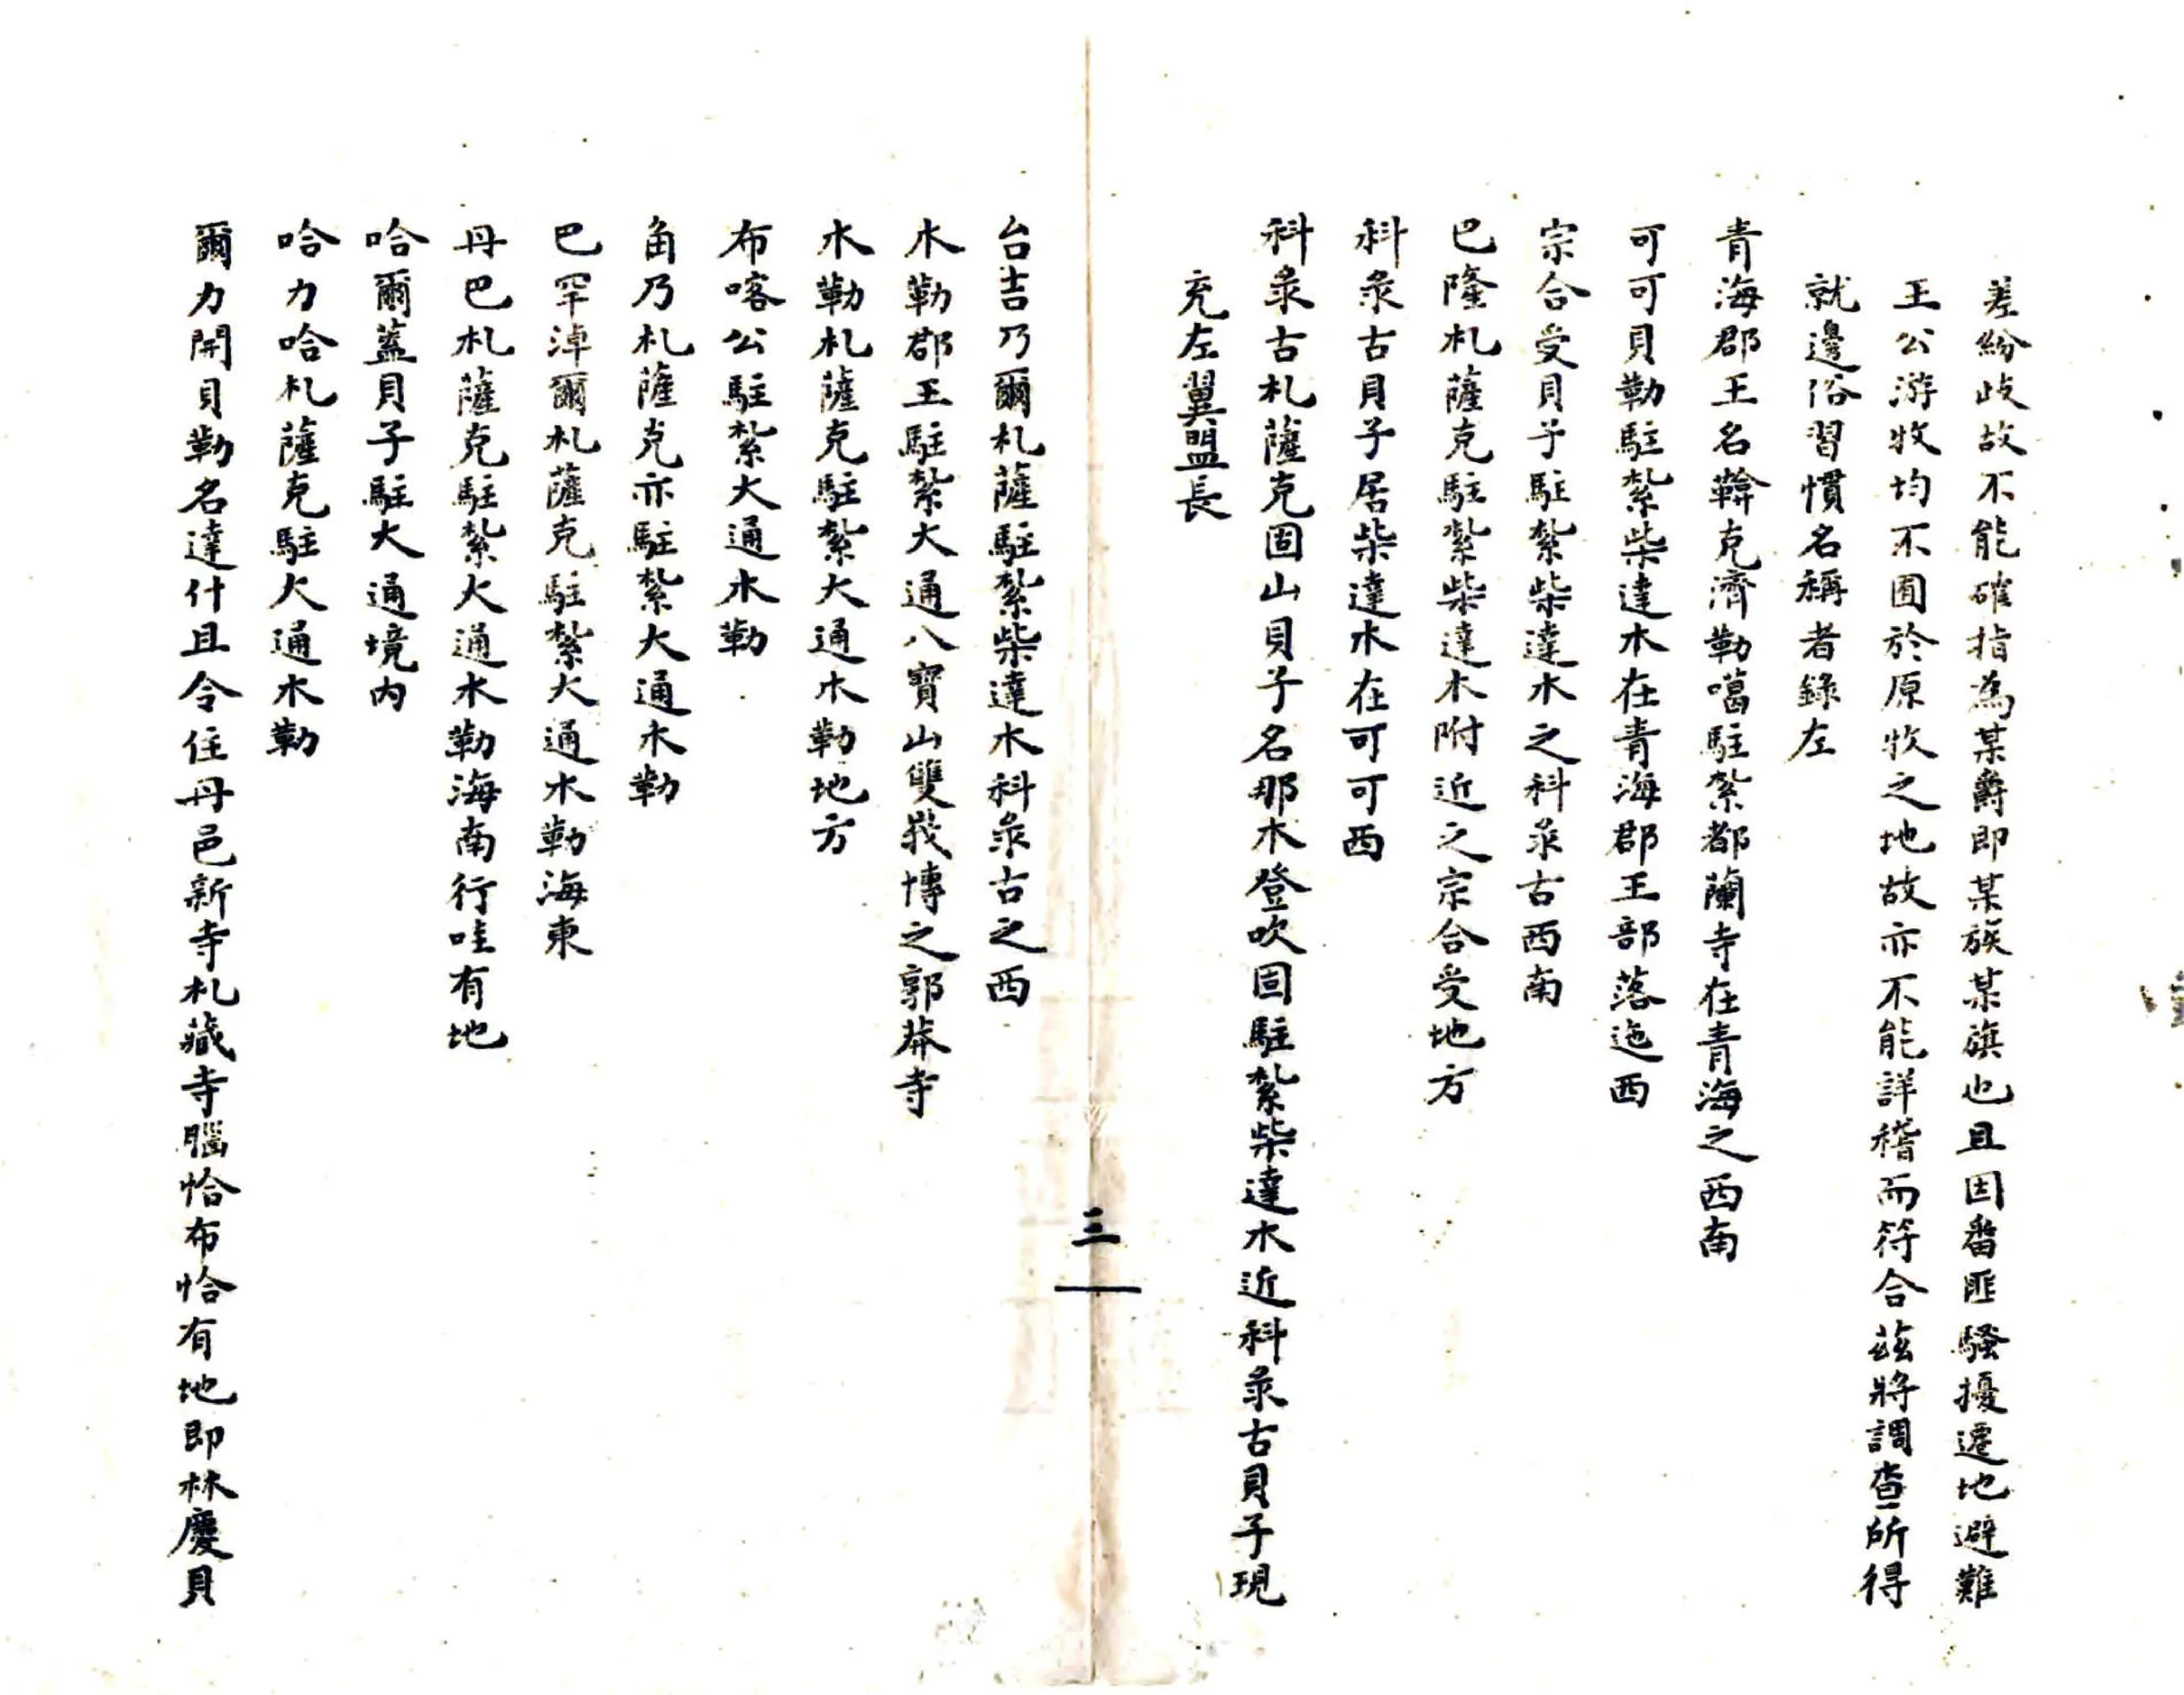 差紛歧故不能確指為某爵即某族某旗也且因番匪騷擾遷地避難
王公游牧均不囿於原牧之地故亦不能詳稽而符合茲將調查所得
就邊俗習慣名稱者錄左
青海郡王名鞥克濟勒噶駐紮都蘭寺在青海之西南
可可貝勒駐紮柴達木在青海郡王部落迤西
宗合受貝子駐紮柴達木之科彔古西南
巴隆札薩克駐紮柴達木附近之宗合受地方
科彔古貝子居柴達木在可可西
科彔古札薩克固山貝子名那木登吹固駐紮柴達木近科彔古貝子現
充左翼盟長
三
台吉乃爾札薩駐紮柴達木科彔古之西
水勒郡王駐紮大通八寶山雙峩博之郭莽寺
木勒札薩克駐紮大通木勒地方
布喀公駐紮大通木勒
角乃札薩克亦駐紮大通木勒
巴罕淖爾札薩克駐紮大通木勒海東
丹巴札薩克駐紮大通木勒海南行哇有地
哈爾蓋貝子駐大通境內
哈力哈札薩克駐大通木勒
爾力開貝勒名達什且令住丹邑新寺札藏寺腦恰布恰有地即林慶貝